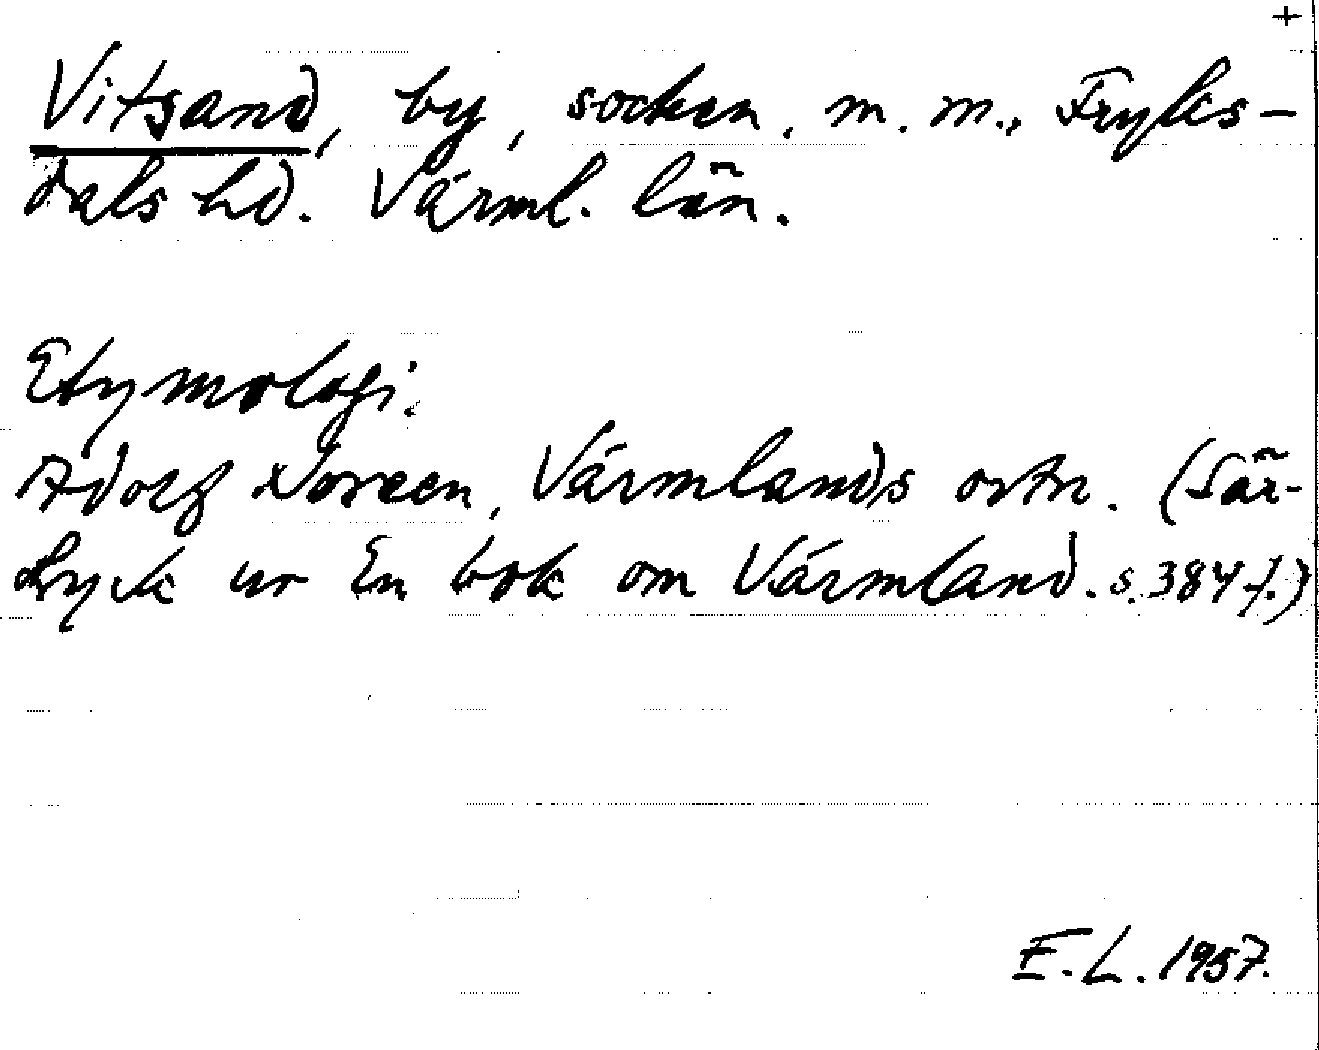 +
Vitsand, by, socken, m. m., Fryks-
dals hd. Värml. län.
Etymologi.
Adolf Noreen, Värmlands ortn. (Sär-
tryck ur En bok om Värmland. s. 384 f.)
E. L. 1957.